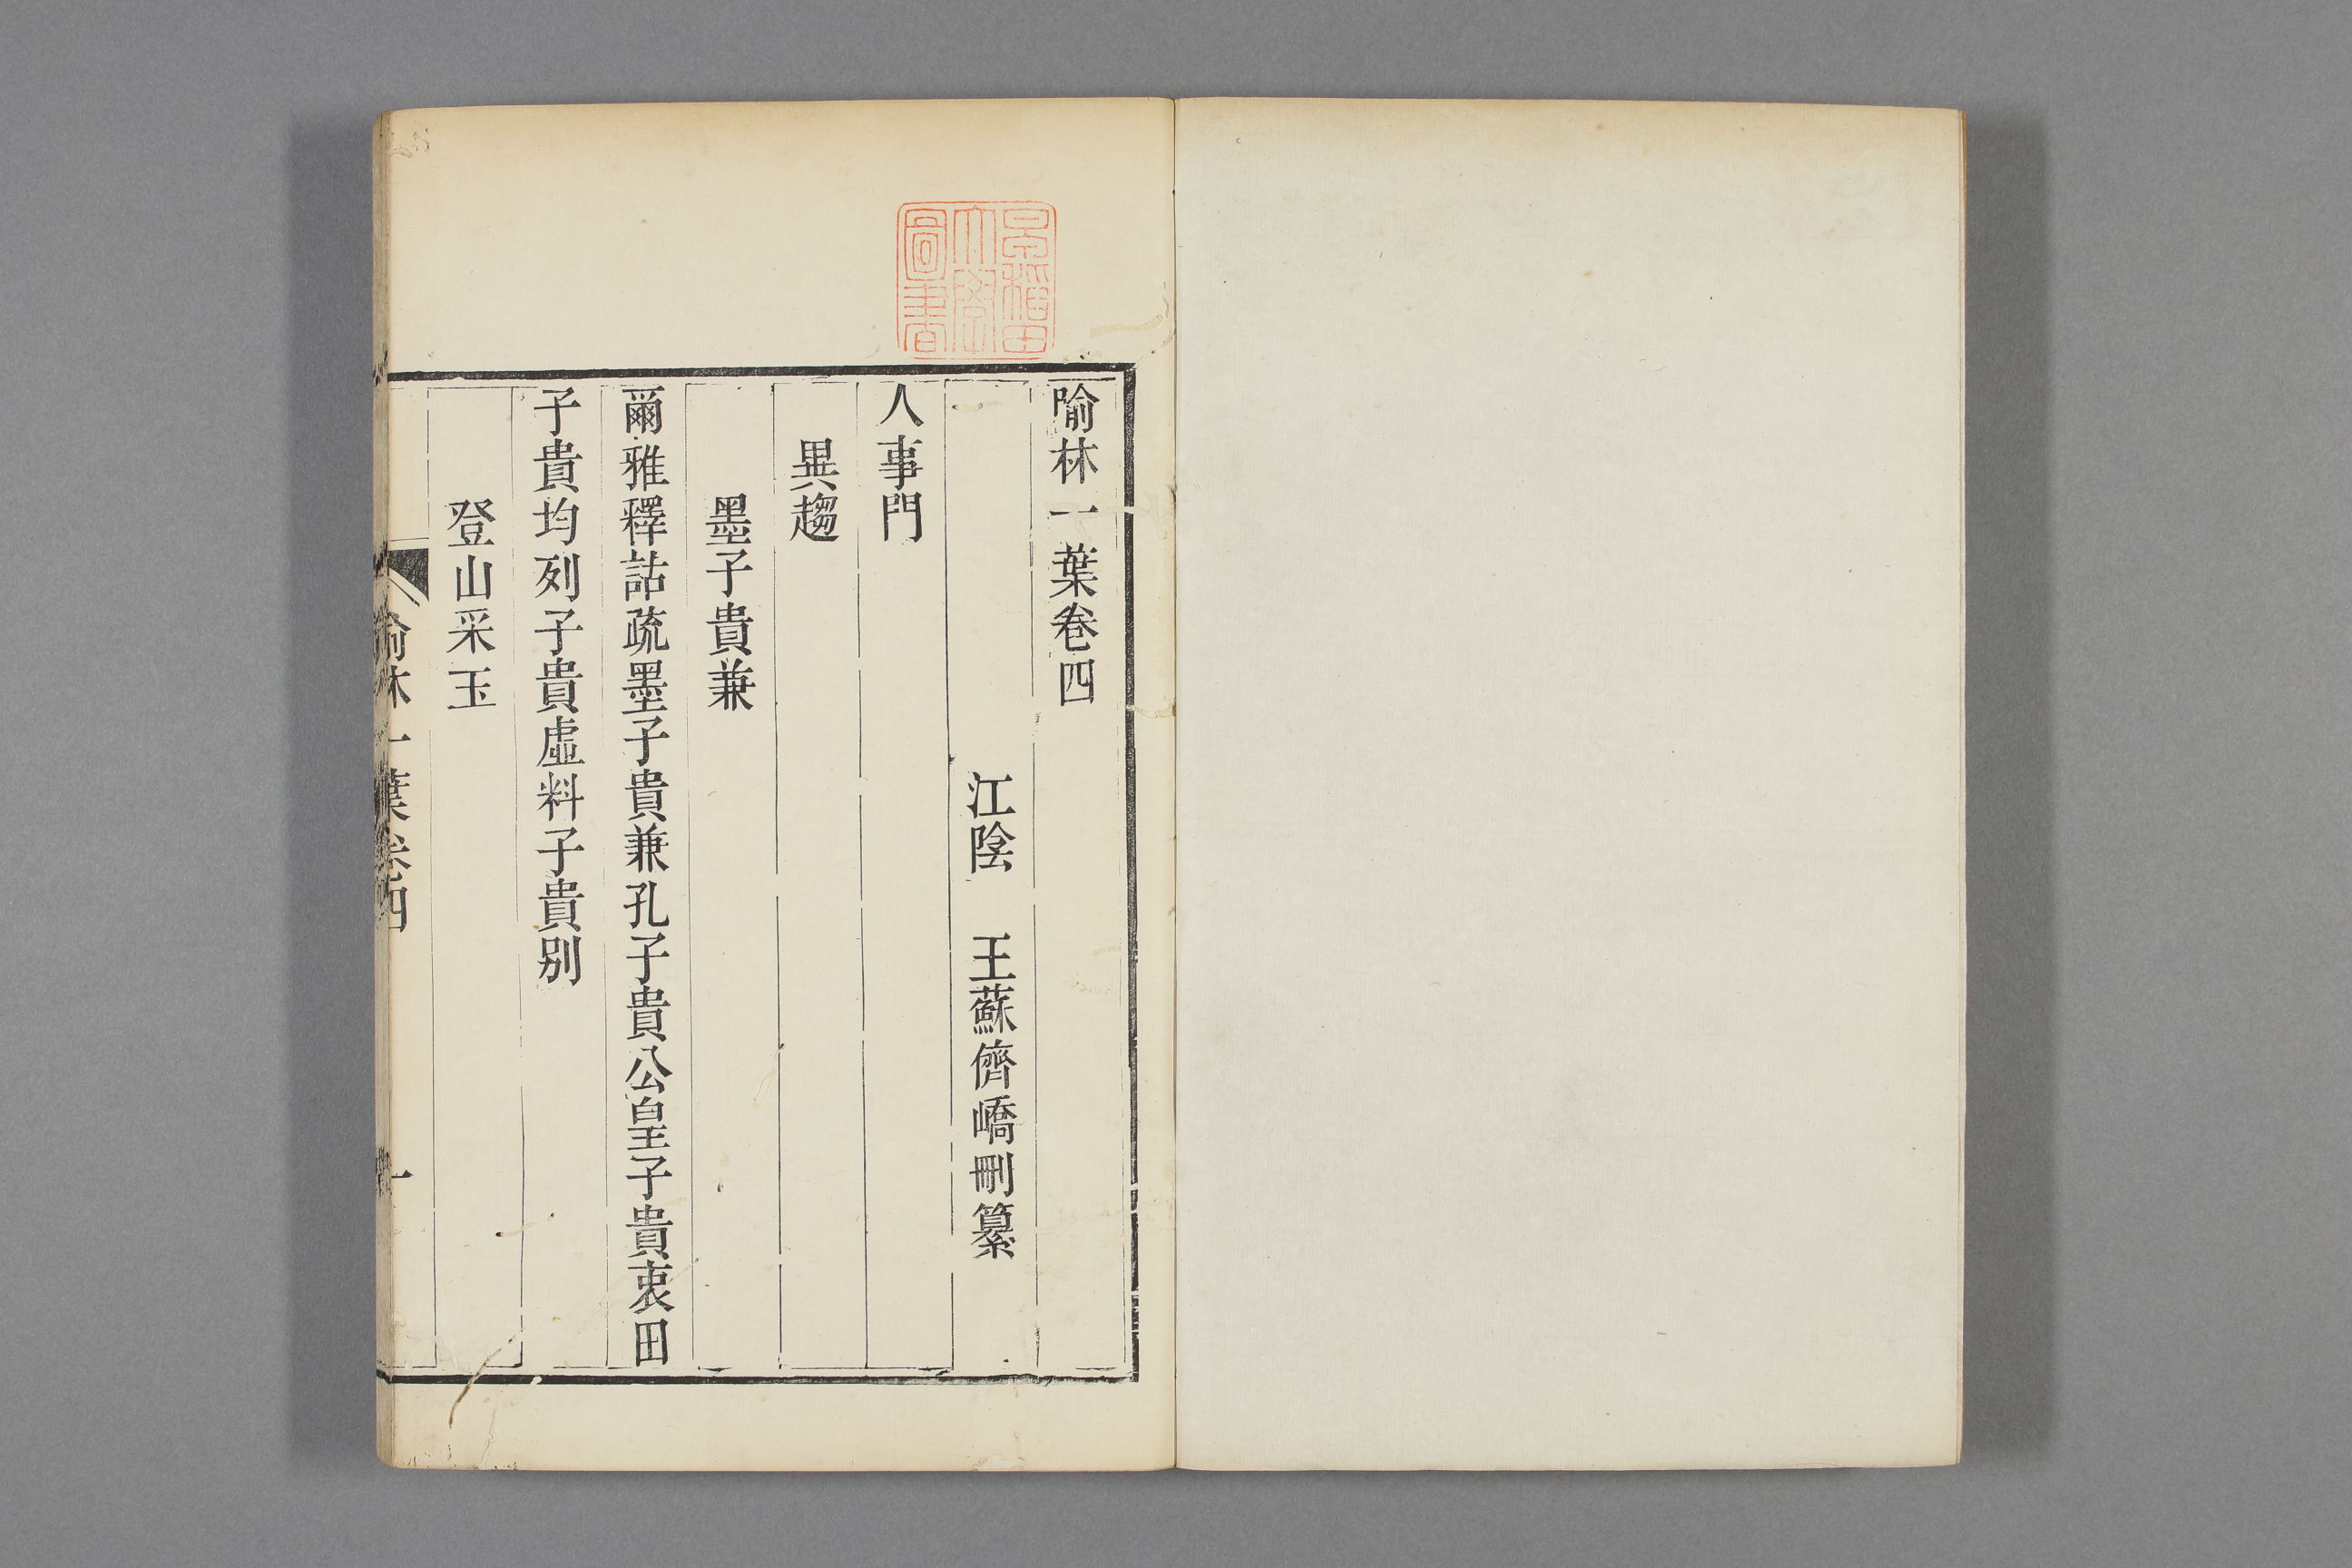 喻林一葉卷四
江陰　王蘇儕嶠刪纂
人事門
異趨
墨子貴兼
爾雅釋詁疏墨子貴兼孔子貴公皇子貴衷田
子貴均列子貴虛料子貴別
登山采玉
喻林一葉卷四
一
早稻田
大學
圖書